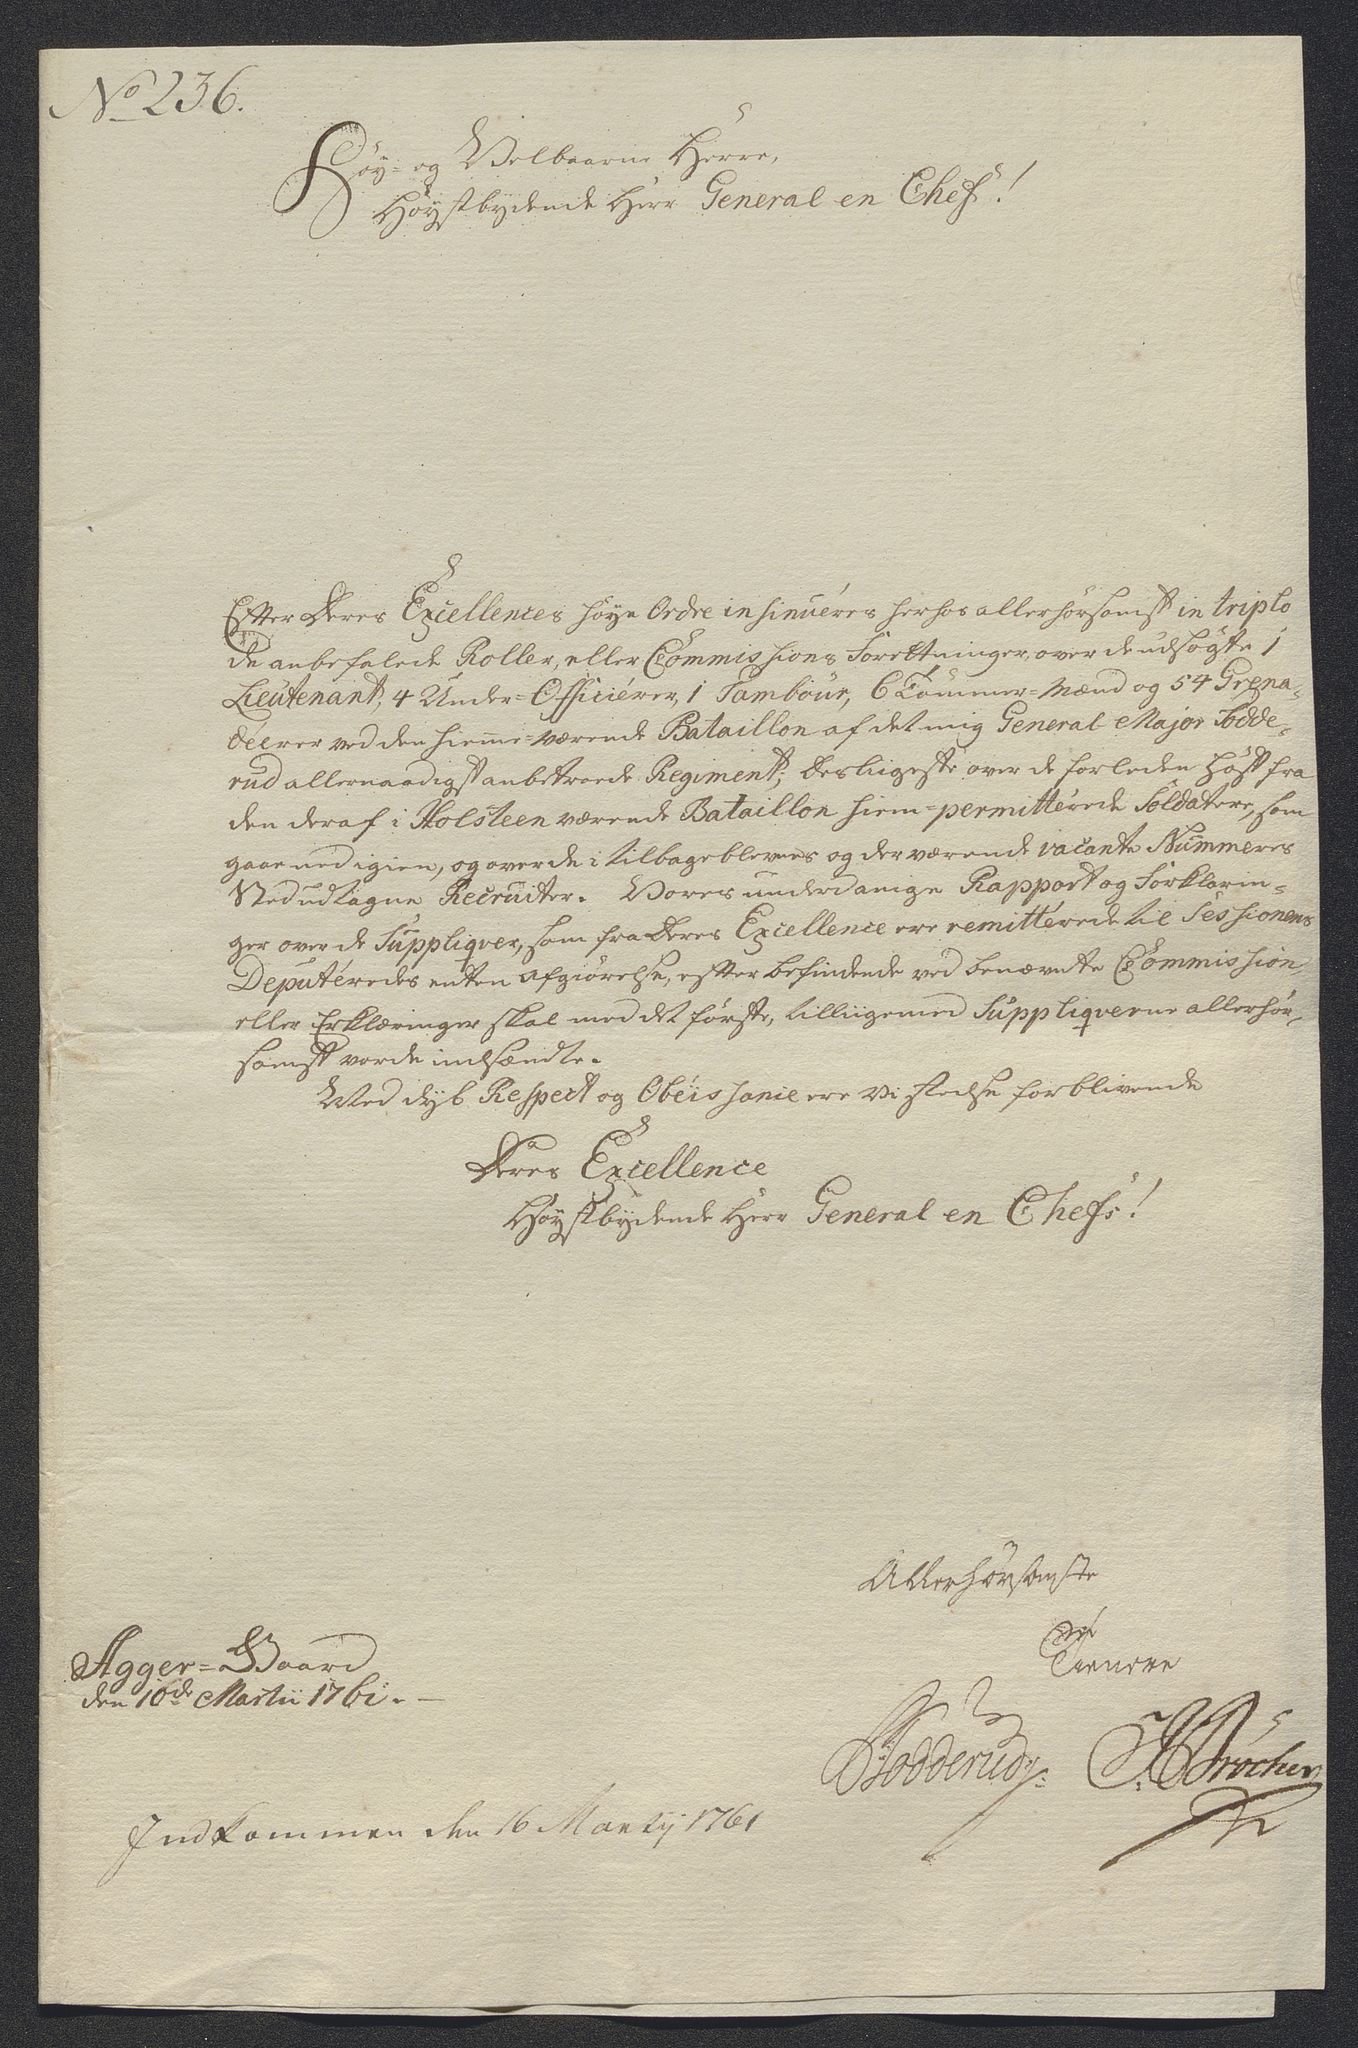 No 236.
Høy- og Velbaarne Herre,
Høystbydende Herr General en Chef!
Efter Deres Excellences høye Ordre insinuéres herhos allerhørsomst in triplo
de anbefalede Roller, eller Commissions Forretninger, over de udsøgte 1
Lieutenant, 4 Under-Officiérer, 1 Tambour, 6 Tømmer-Mænd og 54 Grena-
deerer ved den hieme-værende Bataillon af det mig General Major Todde-
rud allernaadigst anbetroede Regiment; Desliigeste over de forleden Høst fra
den deraf i Holsteen værende Bataillon hiem-permitterede Soldatere, som
gaar ned igien, og over de i tilbageblevnes og der værende vacante Nummeres
Sted udtagne Recruiter. Vores underdanige Rapport og Forklarin-
ger over de Suppliqver, som fra Deres Excellence ere remitterede til Sessionens
Deputéredes enten Afgiørelse, efter befindende ved benævnte Commission,
eller Erklæringer skal med det første, tilliigemed Suppliqverne allerhør-
somst vorde indsændte.
Med dyb Respect og Obeissance ere Vi stedse forblivende
Deres Excellence
Høystbydende Herr General en Chefs!
Allerhørsomste
Tienere
Agger-Gaard
den 10de Martii 1761.
Todderud
Indkommen den 16 Martij 1761